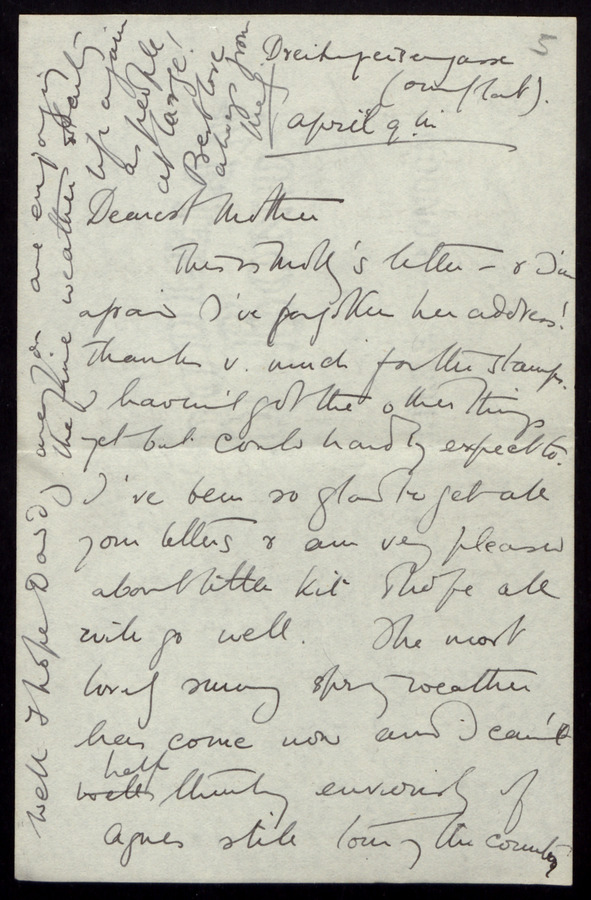 Dreihufeisengasse
(our flat).
April 9th
Dearest Mother
This is Molly's letter — & I'm
afraid I've forgotten her address!
Thanks v. much for the stamps.
I haven't got the other things
yet but could hardly expect to.
I've been so glad to get all
your letters & am very pleased
about little Kit I hope all
will go well. The most
lovely sunny spring weather
has come now and I can't
help thinking enviously of
Agnes still touring the country
well I hope Daddy and you are enjoying
the fine weather &
up again
as people
at large!
Best love
always from